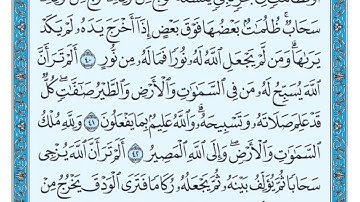 سَحَابٌ ۚ ظُلُمَٰتٌۢ بَعْضُهَا فَوْقَ بَعْضٍ إِذَآ أَخْرَجَ يَدَهُۥ لَمْ يَكَدْ
يَرَىٰهَا ۗ وَمَن لَّمْ يَجْعَلِ ٱللَّهُ لَهُۥ نُورًا فَمَا لَهُۥ مِن نُّورٍ ٤٠ أَلَمْ تَرَ أَنَّ
ٱللَّهَ يُسَبِّحُ لَهُۥ مَن فِى ٱلسَّمَٰوَٰتِ وَٱلْأَرْضِ وَٱلطَّيْرُ صَٰٓفَّٰتٍ ۖ كُلٌّ
قَدْ عَلِمَ صَلَاتَهُۥ وَتَسْبِيحَهُۥ ۗ وَٱللَّهُ عَلِيمٌۢ بِمَا يَفْعَلُونَ ٤١ وَلِلَّهِ مُلْكُ
ٱلسَّمَٰوَٰتِ وَٱلْأَرْضِ ۖ وَإِلَى ٱللَّهِ ٱلْمَصِيرُ ٤٢ أَلَمْ تَرَ أَنَّ ٱللَّهَ يُزْجِى
سَحَابًا ثُمَّ يُؤَلِّفُ بَيْنَهُۥ ثُمَّ يَجْعَلُهُۥ رُكَامًا فَتَرَى ٱلْوَدْقَ يَخْرُجُ مِنْ